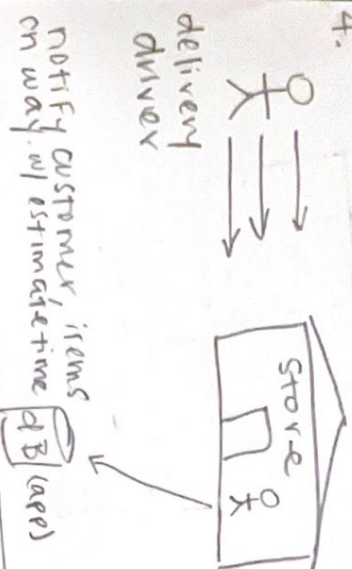 4.
delivery
driver
Store
notify customer, items
on way. w/ estimate time dB (app)